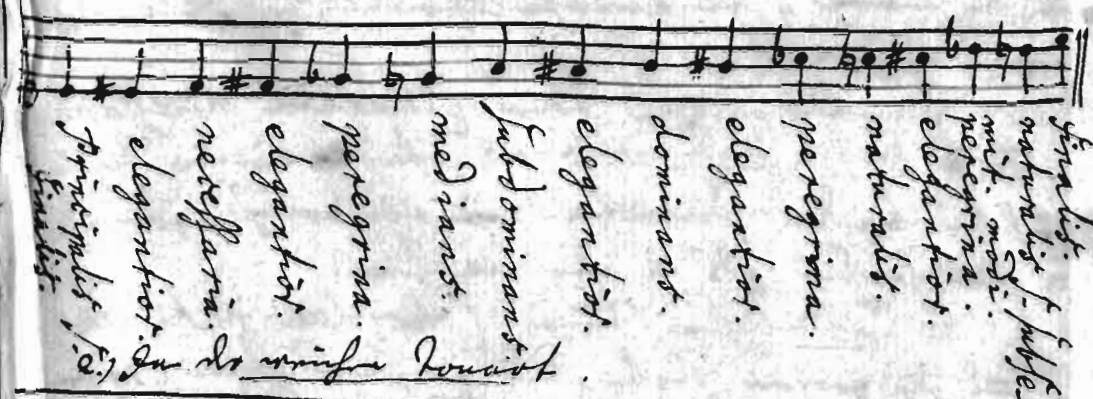 principalis s.
finalis.
elegantior.
necessaria.
elegantior.
peregrina.
mediant.
subdominant.
elegantior.
dominant.
elegantior.
peregrina.
naturalis.
elegantior.
mut. modi.
peregrina.
naturalis s. subse
finalis
2.) In der weichen Tonart.